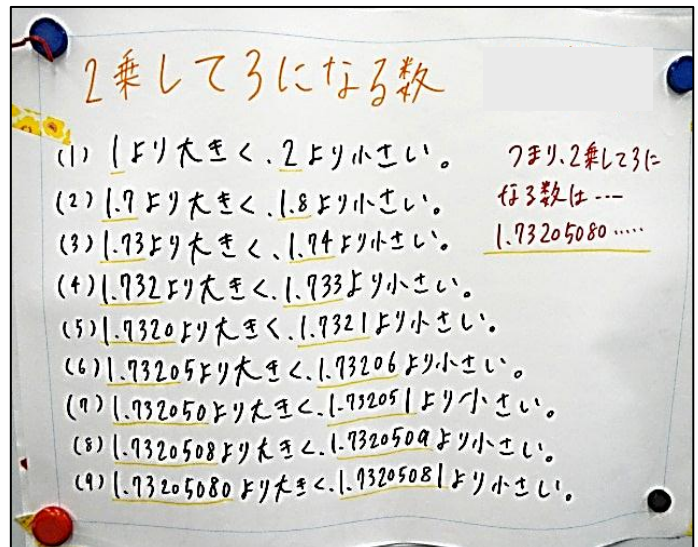 2乗して3になる数
(1) 1より大きく、2より小さい。
(2) 1.7より大きく、1.8より小さい。
(3) 1.73より大きく、1.74より小さい。
(4) 1.732より大きく、1.733より小さい。
(5) 1.7320より大きく、1.7321より小さい。
(6) 1.73205より大きく、1.73206より小さい。
(7) 1.732050より大きく、1.732051より小さい。
(8) 1.7320508より大きく、1.7320509より小さい。
(9) 1.73205080より大きく、1.73205081より小さい。
つまり、2乗して3に
なる数は……
1.73205080……